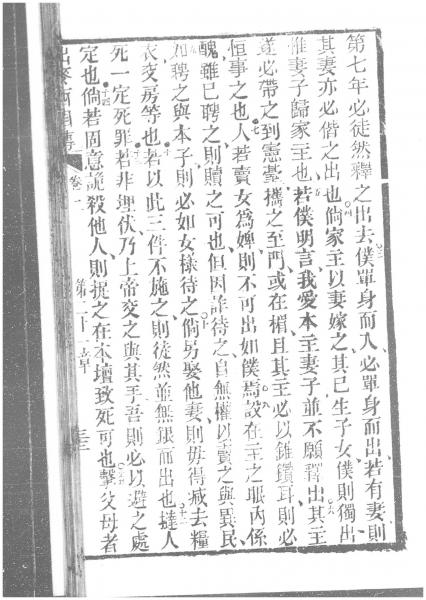 第七年必徒然釋之出去僕單身而入必單身而出若有妻則
其妻亦必偕之出也倘家主以妻嫁之其已生子女僕則獨出
惟妻子歸家主也若僕明言我愛本主妻子並不願釋出其主
遂必帶之到憲臺攜之至門或在楣且其主必以錐鑽耳則必
恒事之也人若賣女為婢則不可出如僕焉設在主之眼內係
醜雖已聘之則贖之可也但因詐待之自無權以賣之與異民
如聘之與本子則必如女樣待之倘另娶他妻則毋得減去糧
衣交房等也若以此三件不施之則徒然並無銀而出也撻人
死一定死罪若非埋伏乃上帝交之與其手吾則必以避之處
定也倘若固意詭殺他人則捉之在本壇致死可也擊父母者
卷一 第二十一章